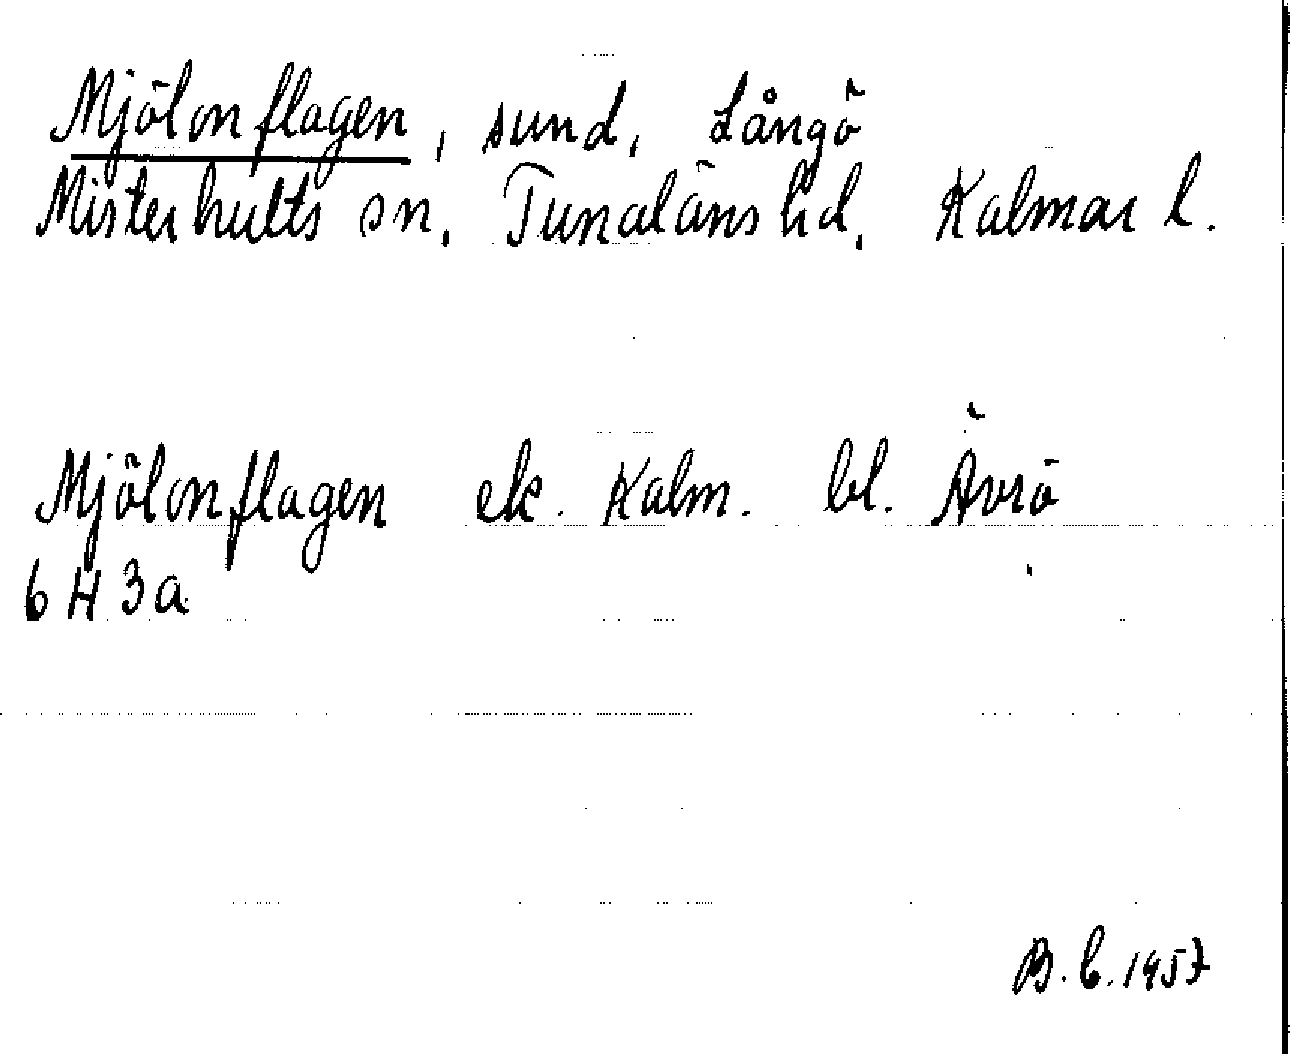 Mjölonflagen, sund, Långö
Misterhults sn, Tunaläns hd, Kalmar l.
Mjölonflagen ek. Kalm. bl. Ävrö
6 H 3 a
B. C. 1957